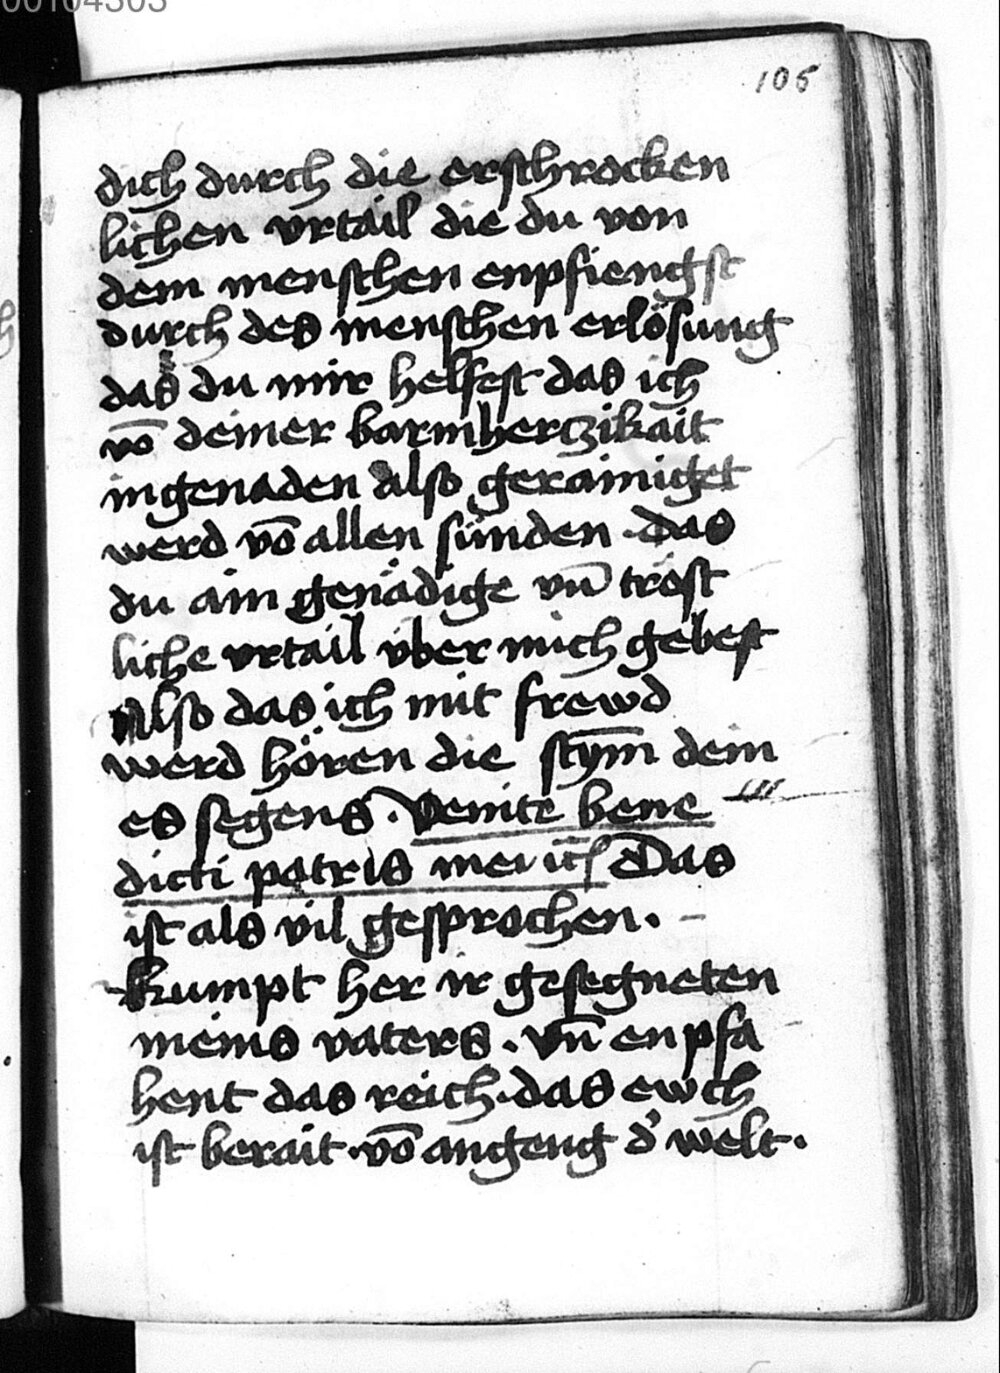 00104303
105
dich durch die erschrocken
lichen vrtail die du von
dem menschen enpfiengst
durch des menschen erlösung
das du mir helfest das ich
vō deiner barmherczikait
ingenaden also gerainiget
werd vō allen sünden . das
du ain genädige vn̄ trost
liche vrtail vber mich gebest
Also das ich mit frewd
werd hören die stym̄ dein
es segens . Venite bene
dicti patris mei
Das
ist als vil gesprochen .
kumpt her ir gesegneten
meins vaters . vn̄ enpfa
hent das reich . das ewch
ist berait . vō angeng d' welt .